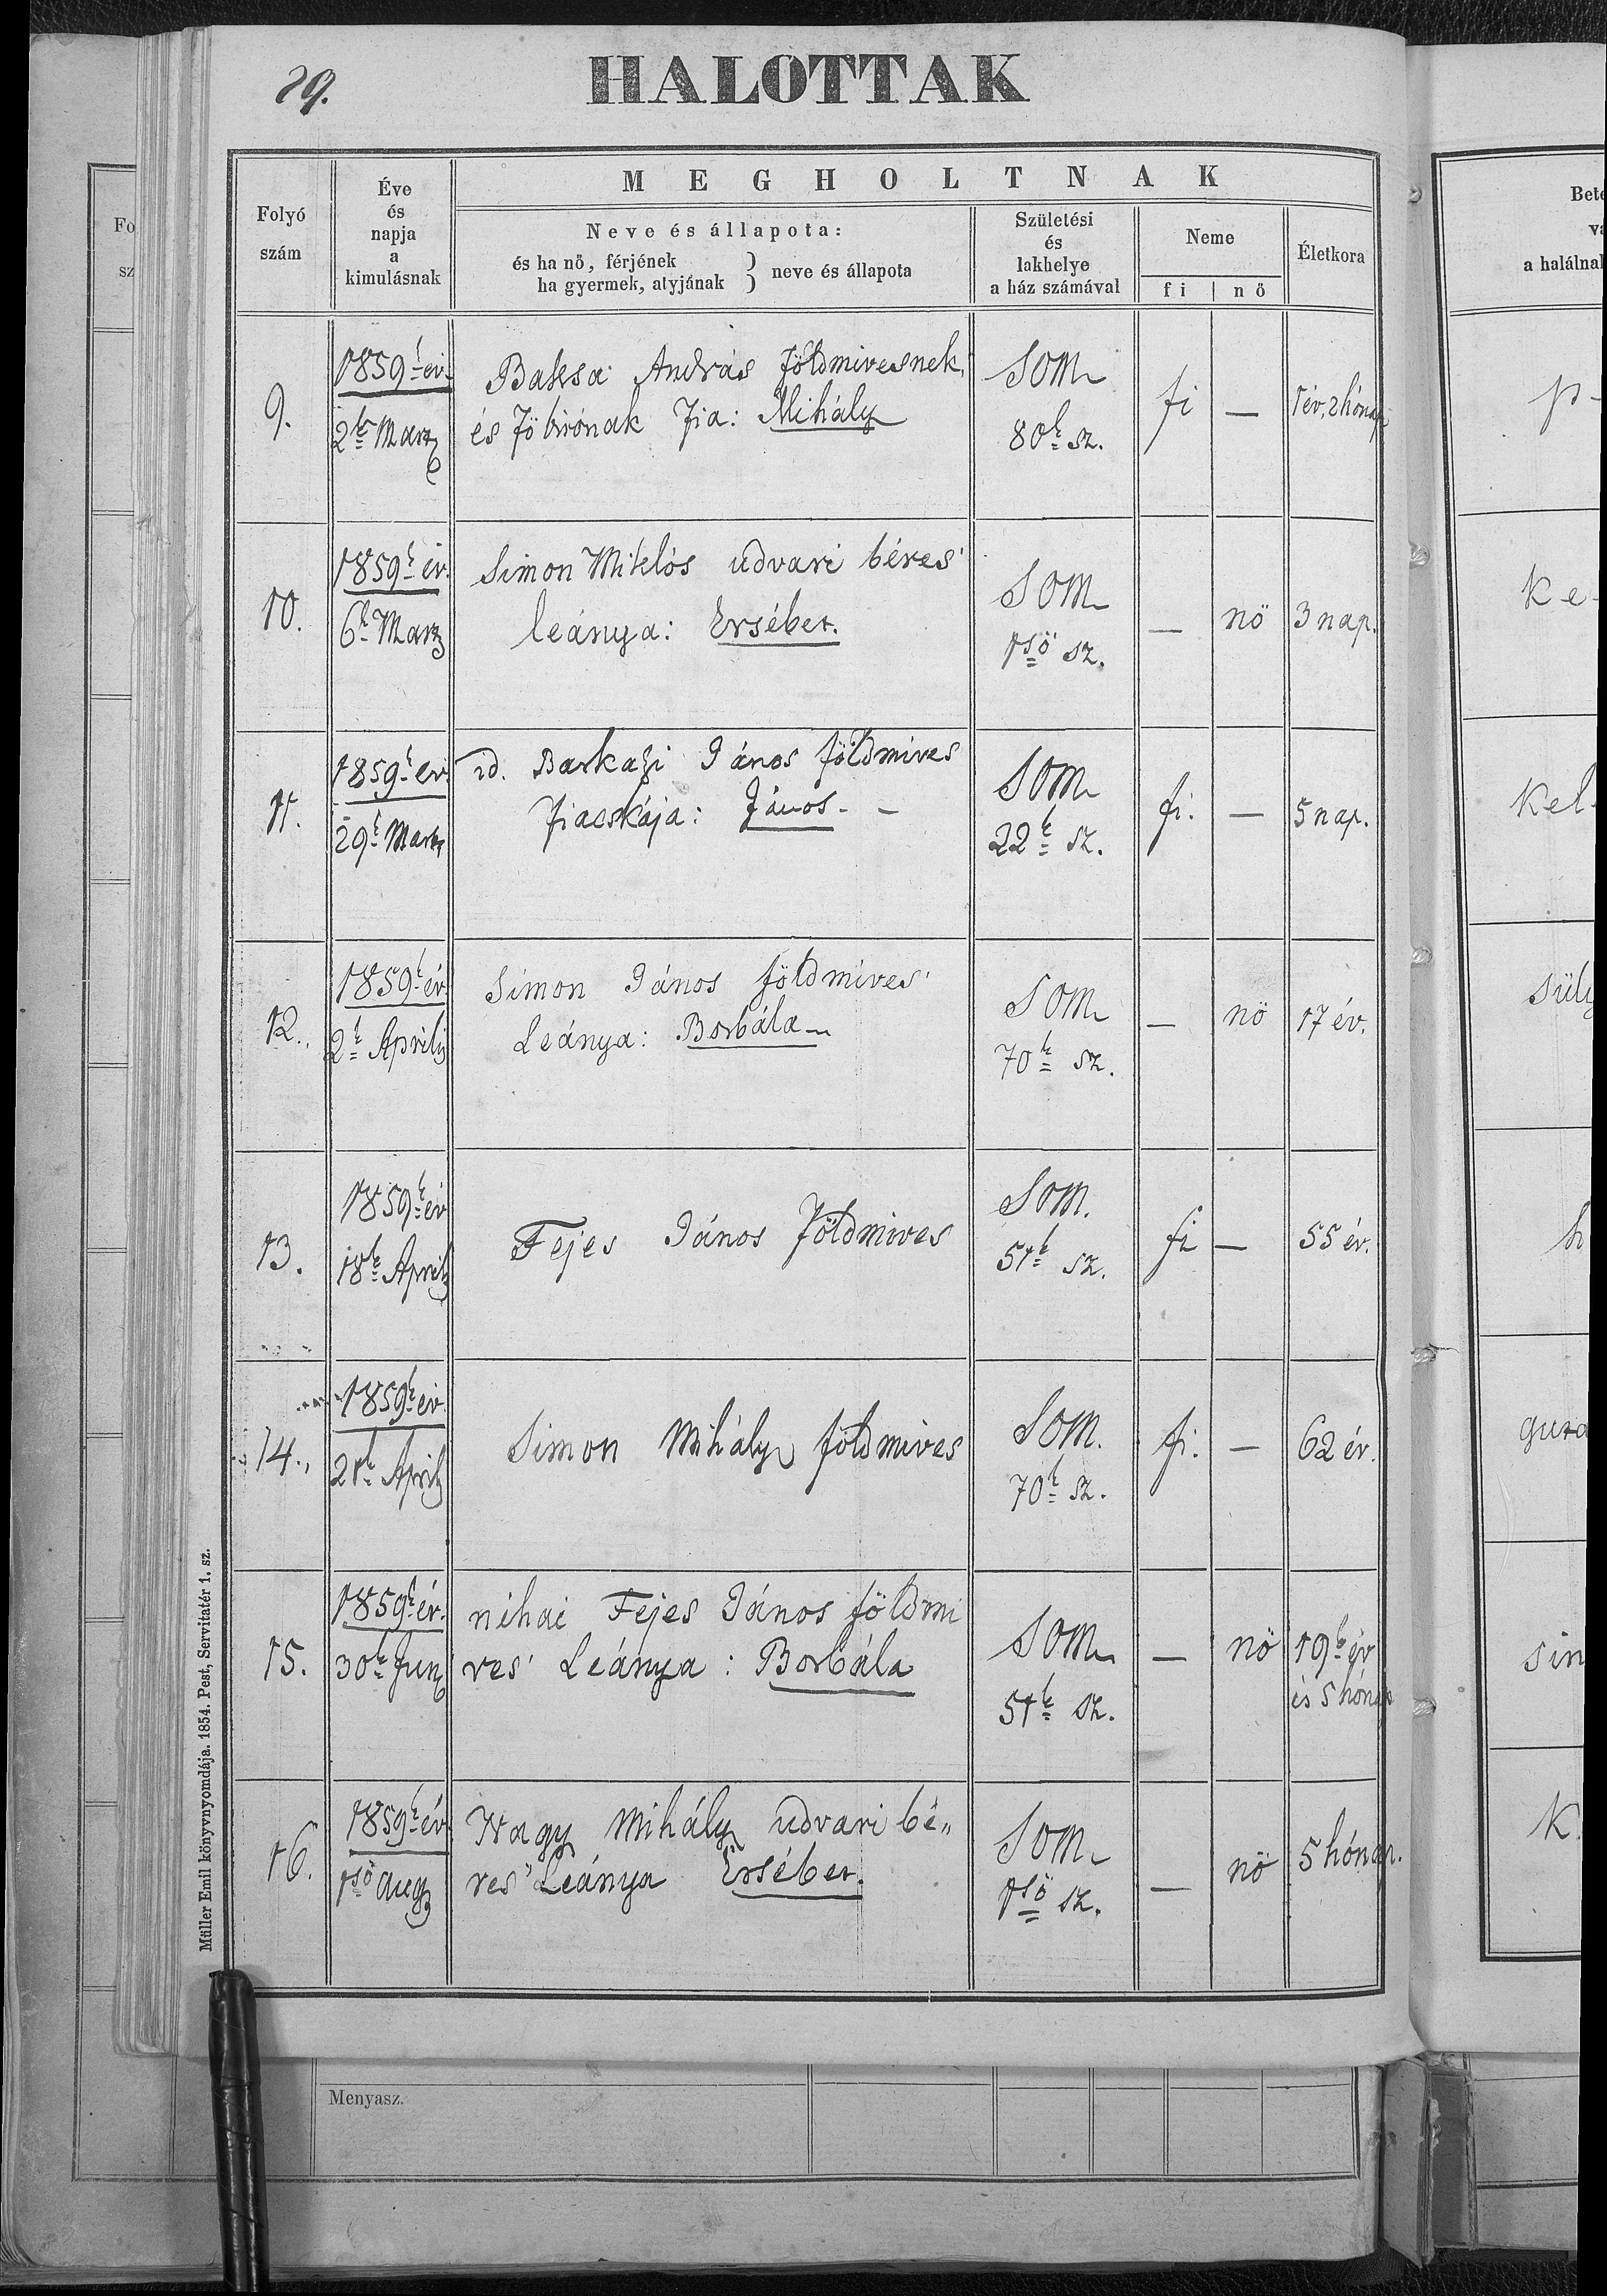 29.
HALOTTAK
Folyó
szám
Éve
és
napja
a
kimulásnak
MEGHOLTNAK
Neve és állapota:
és ha nő, férjének
ha gyermek, atyjának } neve és állapota
Születési
és
lakhelye
a ház számával
Neme
fi | nő
Életkora
9.
1859k év.
2k Marz
Baksa András földmivesnek,
és Főbirónak Fia: Mihály
Som
80k sz.
fi
—
1 év, 2 hónap
10.
1859k év.
6k Marz
Simon Miklós udvari béres'
leánya: Ersébet.
Som
1ső sz.
—
nő
3 nap.
11.
1859k év
29k Marz
id. Barkazi János földmives
Fiacskája: János. -
Som
22k sz.
fi.
—
5 nap.
12.
1859k év
2k Aprily
Simon János földmives'
Leánya: Borbála
Som
70k sz.
—
nő
17 év.
13.
1859k év
18k Aprily
Fejes János Földmives
Som.
51k sz.
fi
—
55 év.
14.,
1859k év.
21k Aprily
Simon Mihály földmives
Som.
70k sz.
fi.
—
62 év.
15.
1859k év.
30k Juny
néhai Fejes János földmi
ves' Leánya: Borbála
Som
51k sz.
—
nő
19k év
és 5 hónap
16.
1859k év
1ső Aug
Nagy Mihály udvari bé„
res' Leánya Ersébet.
Som
1ső sz.
—
nő
5 hónap.
Müller Emil könyvnyomdája. 1854. Pest, Servitatér 1. sz.
Menyasz.
Fo
sz
Bete
va
a halálnal
p-
ke-
kel-
süly
h
guta
sin
k.